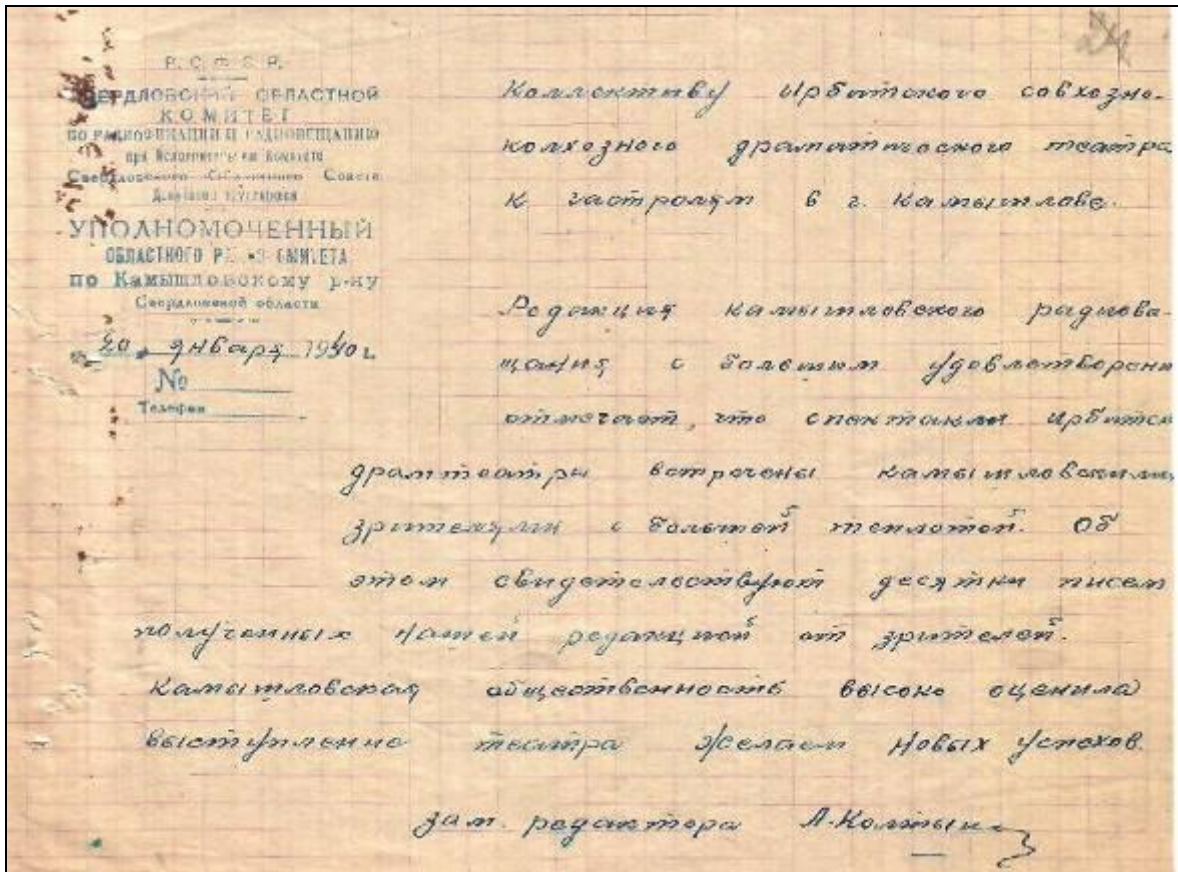 24
Р. С. Ф. С. Р.
СВЕРДЛОВСКИЙ ОБЛАСТНОЙ
КОМИТЕТ
ПО РАДИОФИКАЦИИ И РАДИОВЕЩАНИЮ
при Исполнительном Комитете
Свердловского Областного Совета
Депутатов Трудящихся
УПОЛНОМОЧЕННЫЙ
ОБЛАСТНОГО РАДИОКОМИТЕТА
по Камышловскому р-ну
Свердловской области
20 января 1940 г.
№
Телефон
Коллективу Ирбитского совхозно-
колхозного драматического театра
к гастролям в г. Камышлове.
Редакция камышловского радиове-
щания с большим удовлетворени
отмечает, что спектакли Ирбитск
драмтеатры встречены камышловскими
зрителями с большой теплотой. Об
этом свидетельствуют десятки писем
полученных нашей редакцией от зрителей.
Камышловская общественность высоко оценила
выступление театра Желаем Новых Успехов.
зам. редактора